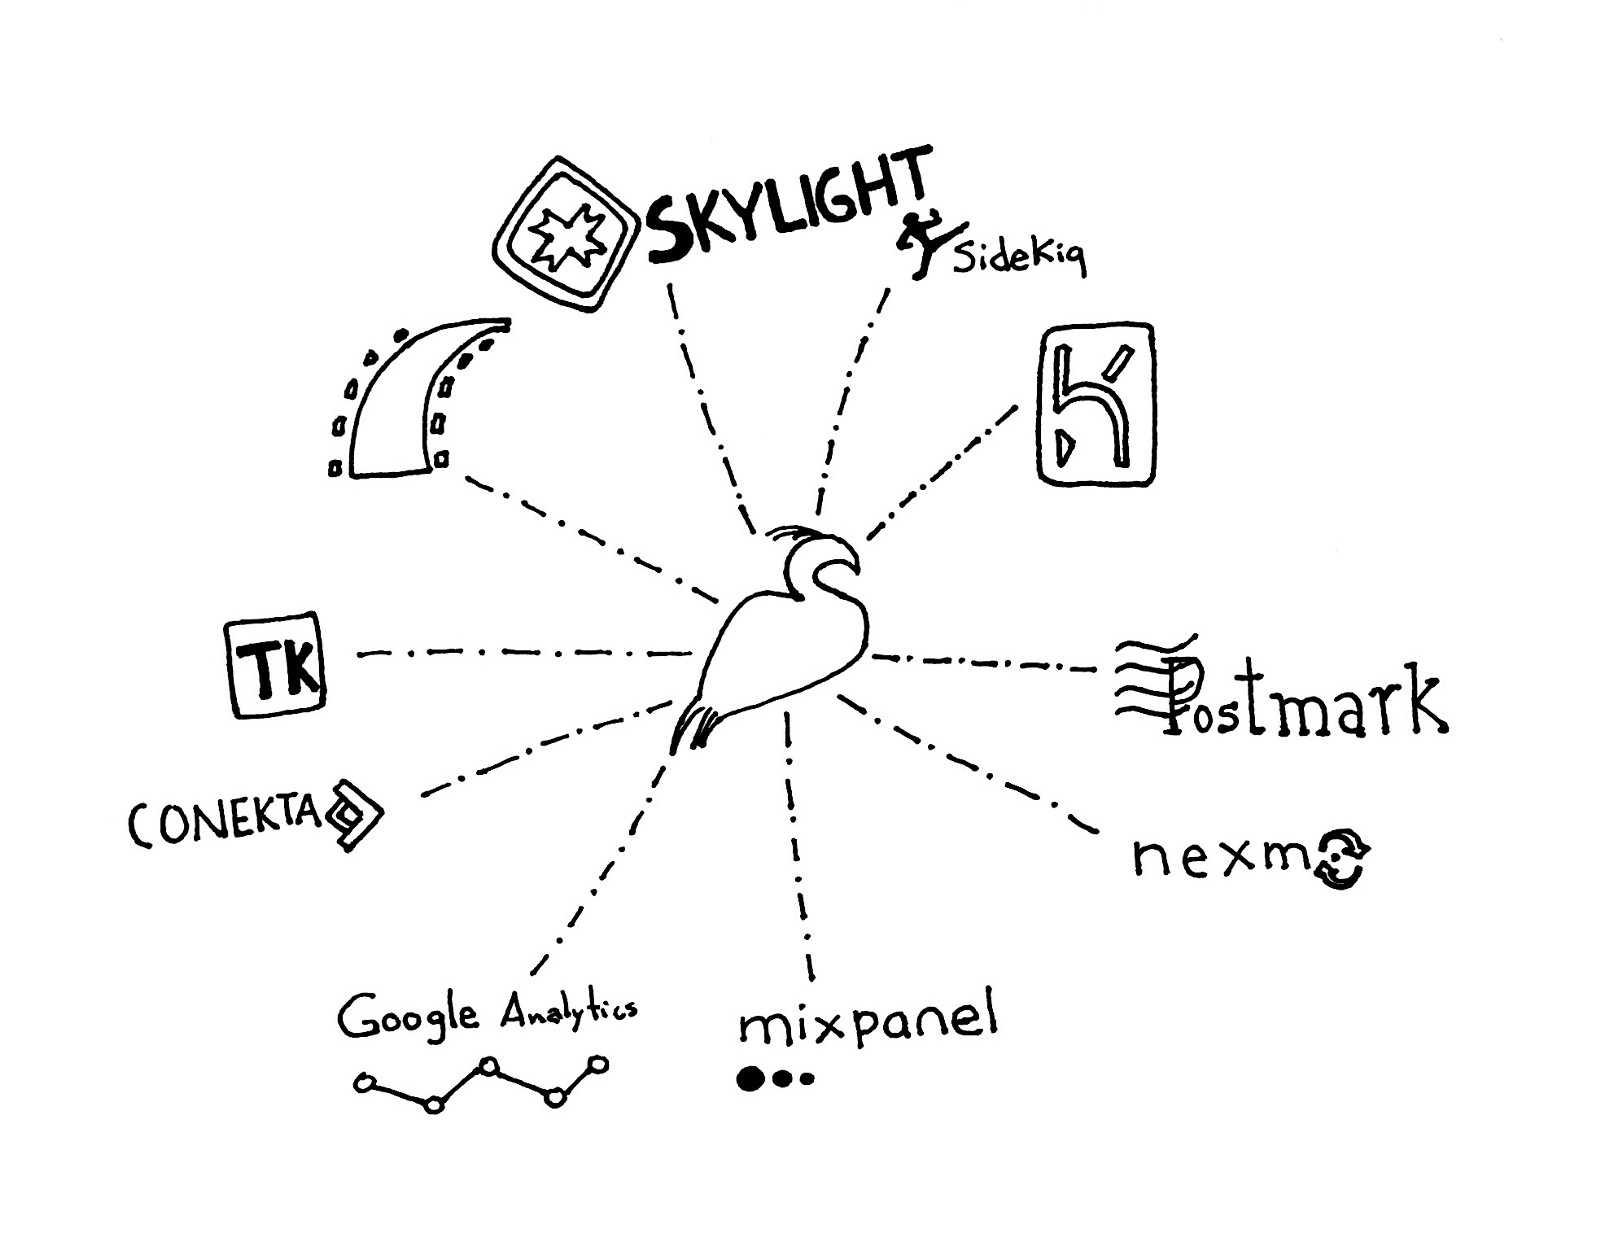 SKYLIGHT
SideKiq
TK
Postmark
CONEKTA
nexmo
Google Analytics
mixpanel